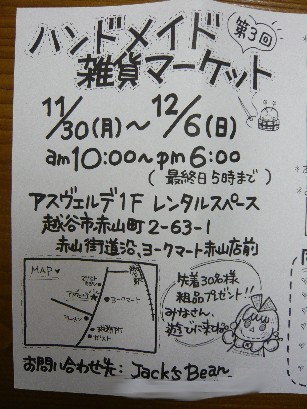 ハンドメイド
第3回
雑貨マーケット
11/30(月)〜12/6(日)
am10:00〜pm6:00
(最終日5時まで)
アスヴェルデ1F レンタルスペース
越谷市赤山町2-63-1
赤山街道沿、ヨークマート赤山店前
MAP
ヨークマート
先着30名様
粗品プレゼント!!
みなさん、
遊びに来てね
お問い合わせ先: Jack's Bean